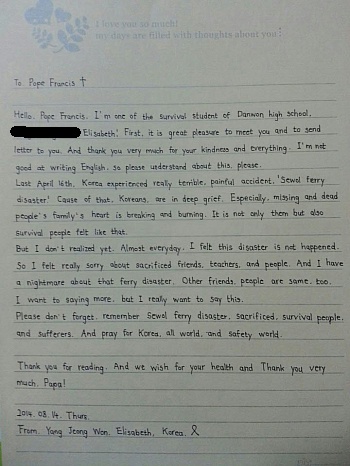 I love you so much!
my days are filled with thoughts about you!
To. Pope Francis ✝
Hello. Pope Francis. I'm one of the survival student of Danwon high school,
Elisabeth! First, it is great pleasure to meet you and to send
letter to you. And thank you very much for your kindness and everything. I'm not
good at writing English, so please understand about this, please.
Last April 16th, Korea experienced really terrible, painful accident, 'Sewol ferry
disaster'. Cause of that, Koreans, are in deep grief. Especially, missing and dead
people's family's heart is breaking and burning. It is not only them but also
survival people felt like that.
But I don't realized yet. Almost everyday, I felt this disaster is not happened.
So I felt really sorry about sacrificed friends, teachers, and people. And I have
a nightmare about that ferry disaster. Other friends, people are same, too.
I want to saying more, but I really want to say this.
Please don't forget, remember Sewol ferry disaster, sacrificed, survival people,
and sufferers. And pray for Korea, all world, and safety world.
Thank you for reading. And we wish for your health and Thank you very
much, Papa!
2014. 08. 14. Thurs.
From. Yang Jeong Won. Elisabeth, Korea.